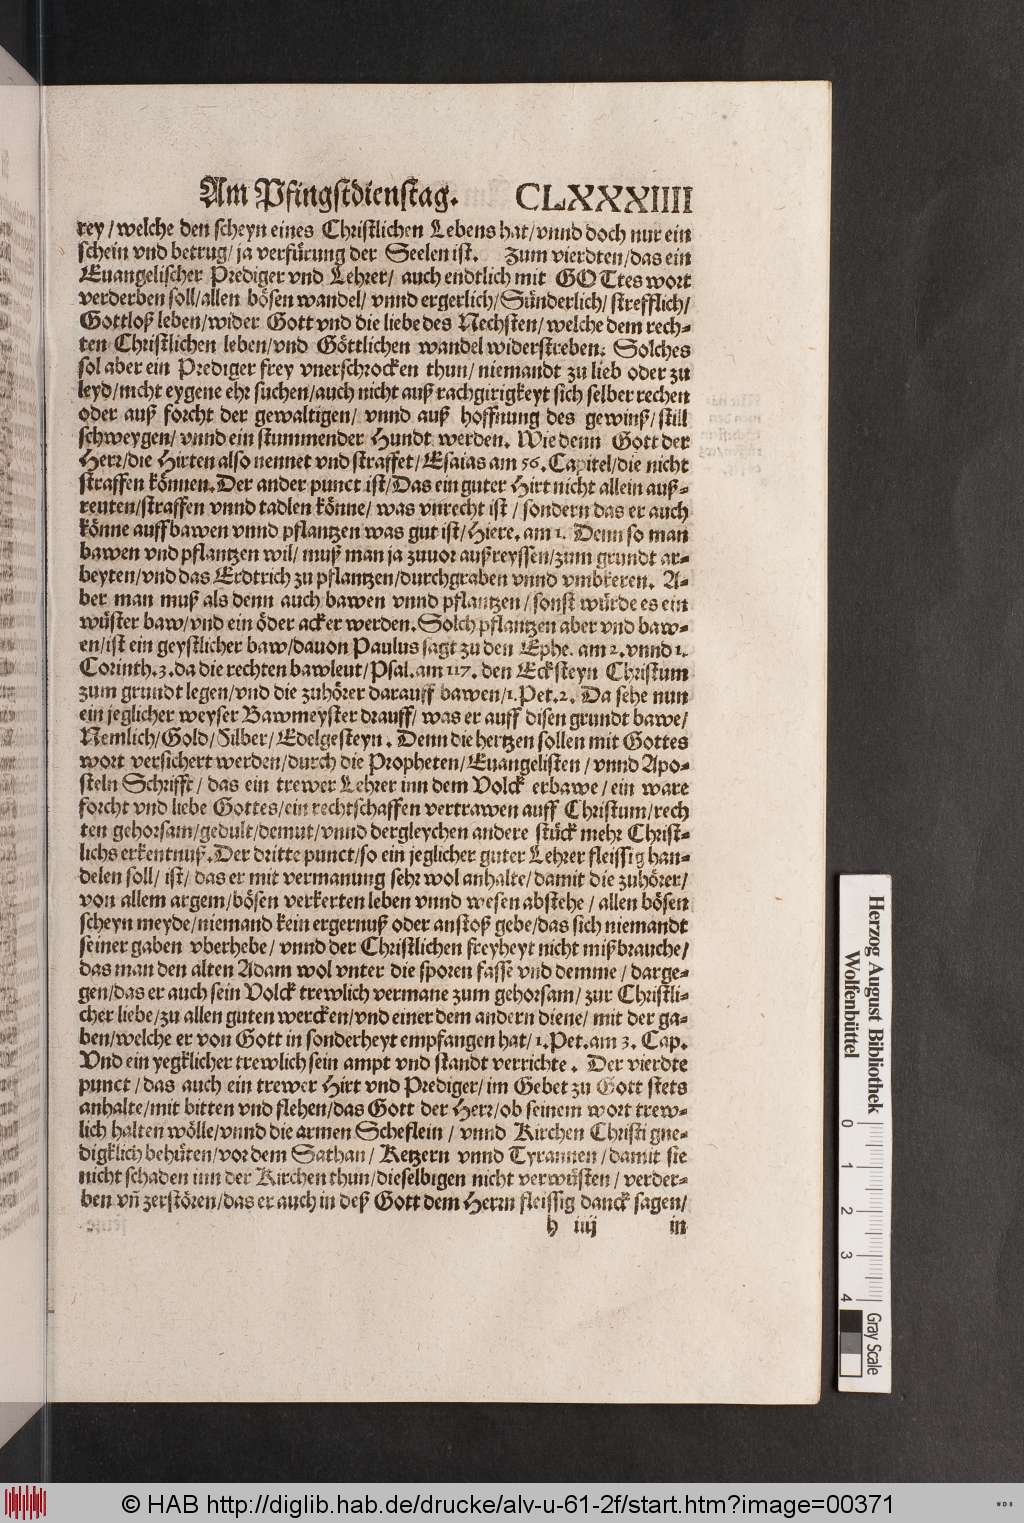 Am Pfingstdienstag. CLXXXIIII
rey/welche den scheyn eines Christlichen Lebens hat/vnnd doch nur ein
schein vnd betrug/ja verfürung der Seelen ist. Zum vierdten/das ein
Euangelischer Prediger vnd Lehrer/auch endtlich mit GOTtes wort
verderben soll/allen bösen wandel/vnnd ergerlich/Sünderlich/strefflich/
Gottloß leben/wider Gott vnd die liebe des Nechsten/welche dem rech-
ten Christlichen leben/vnd Göttlichen wandel widerstreben. Solches
sol aber ein Prediger frey vnerschrocken thun/niemandt zu lieb oder zu
leyd/nicht eygene ehr suchen/auch nicht auß rachgirigkeyt sich selber rechen
oder auß forcht der gewaltigen/vnnd auß hoffnung des gewinß/still
schweygen/vnnd ein stummender Hundt werden. Wie denn Gott der
Herr/die Hirten also nennet vnd straffet/Esaias am 56. Capitel/die nicht
straffen können. Der ander punct ist/Das ein guter Hirt nicht allein auß-
reuten/straffen vnnd tadlen könne/was vnrecht ist/sondern das er auch
könne auffbawen vnnd pflantzen was gut ist/Hiere. am 1. Denn so man
bawen vnd pflantzen wil/muß man ja zuuor außreyssen/zum grundt ar-
beyten/vnd das Erdtrich zu pflantzen/durchgraben vnnd vmbkeren. A-
ber man muß als denn auch bawen vnnd pflantzen/sonst würde es ein
wüster baw/vnd ein öder acker werden. Solch pflantzen aber vnd baw-
en/ist ein geystlicher baw/dauon Paulus sagt zu den Ephe. am 2. vnnd 1.
Corinth. 3. da die rechten bawleut/Psal. am 117. den Ecksteyn Christum
zum grundt legen/vnd die zuhörer darauff bawen/1. Pet. 2. Da sehe nun
ein jeglicher weyser Bawmeyster drauff/was er auff disen grundt bawe/
Nemlich/Gold/Silber/Edelgesteyn. Denn die hertzen sollen mit Gottes
wort versichert werden/durch die Propheten/Euangelisten/vnnd Apo-
steln Schrifft/das ein trewer Lehrer inn dem Volck erbawe/ein ware
forcht vnd liebe Gottes/ein rechtschaffen vertrawen auff Christum/rech
ten gehorsam/gedult/demut/vnnd dergleychen andere stück mehr Christ-
lichs erkentnuß. Der dritte punct/so ein jeglicher guter Lehrer fleissig han-
delen soll/ist/das er mit vermanung sehr wol anhalte/damit die zuhörer/
von allem argem/bösen verkerten leben vnnd wesen abstehe/allen bösen
scheyn meyde/niemand kein ergernuß oder anstoß gebe/das sich niemandt
seiner gaben vberhebe/vnnd der Christlichen freyheyt nicht mißbrauche/
das man den alten Adam wol vnter die sporen fasse vnd demme/darge-
gen/das er auch sein Volck trewlich vermane zum gehorsam/zur Christli-
cher liebe/zu allen guten wercken/vnd einer dem andern diene/mit der ga-
ben/welche er von Gott in sonderheyt empfangen hat/1. Pet. am 3. Cap.
Vnd ein yegklicher trewlich sein ampt vnd standt verrichte. Der vierdte
punct/das auch ein trewer Hirt vnd Prediger/im Gebet zu Gott stets
anhalte/mit bitten vnd flehen/das Gott der Herr/ob seinem wort trew-
lich halten wölle/vnnd die armen Scheflein/vnnd Kirchen Christi gne-
digklich behüten/vor dem Sathan/Ketzern vnnd Tyrannen/damit sie
nicht schaden inn der Kirchen thun/dieselbigen nicht verwüsten/verder-
ben vñ zerstören/das er auch in deß Gott dem Herrn fleissig danck sagen/
h iiij in
Herzog August Bibliothek
Wolfenbüttel
0 1 2 3 4
Gray Scale
© HAB http://diglib.hab.de/drucke/alv-u-61-2f/start.htm?image=00371